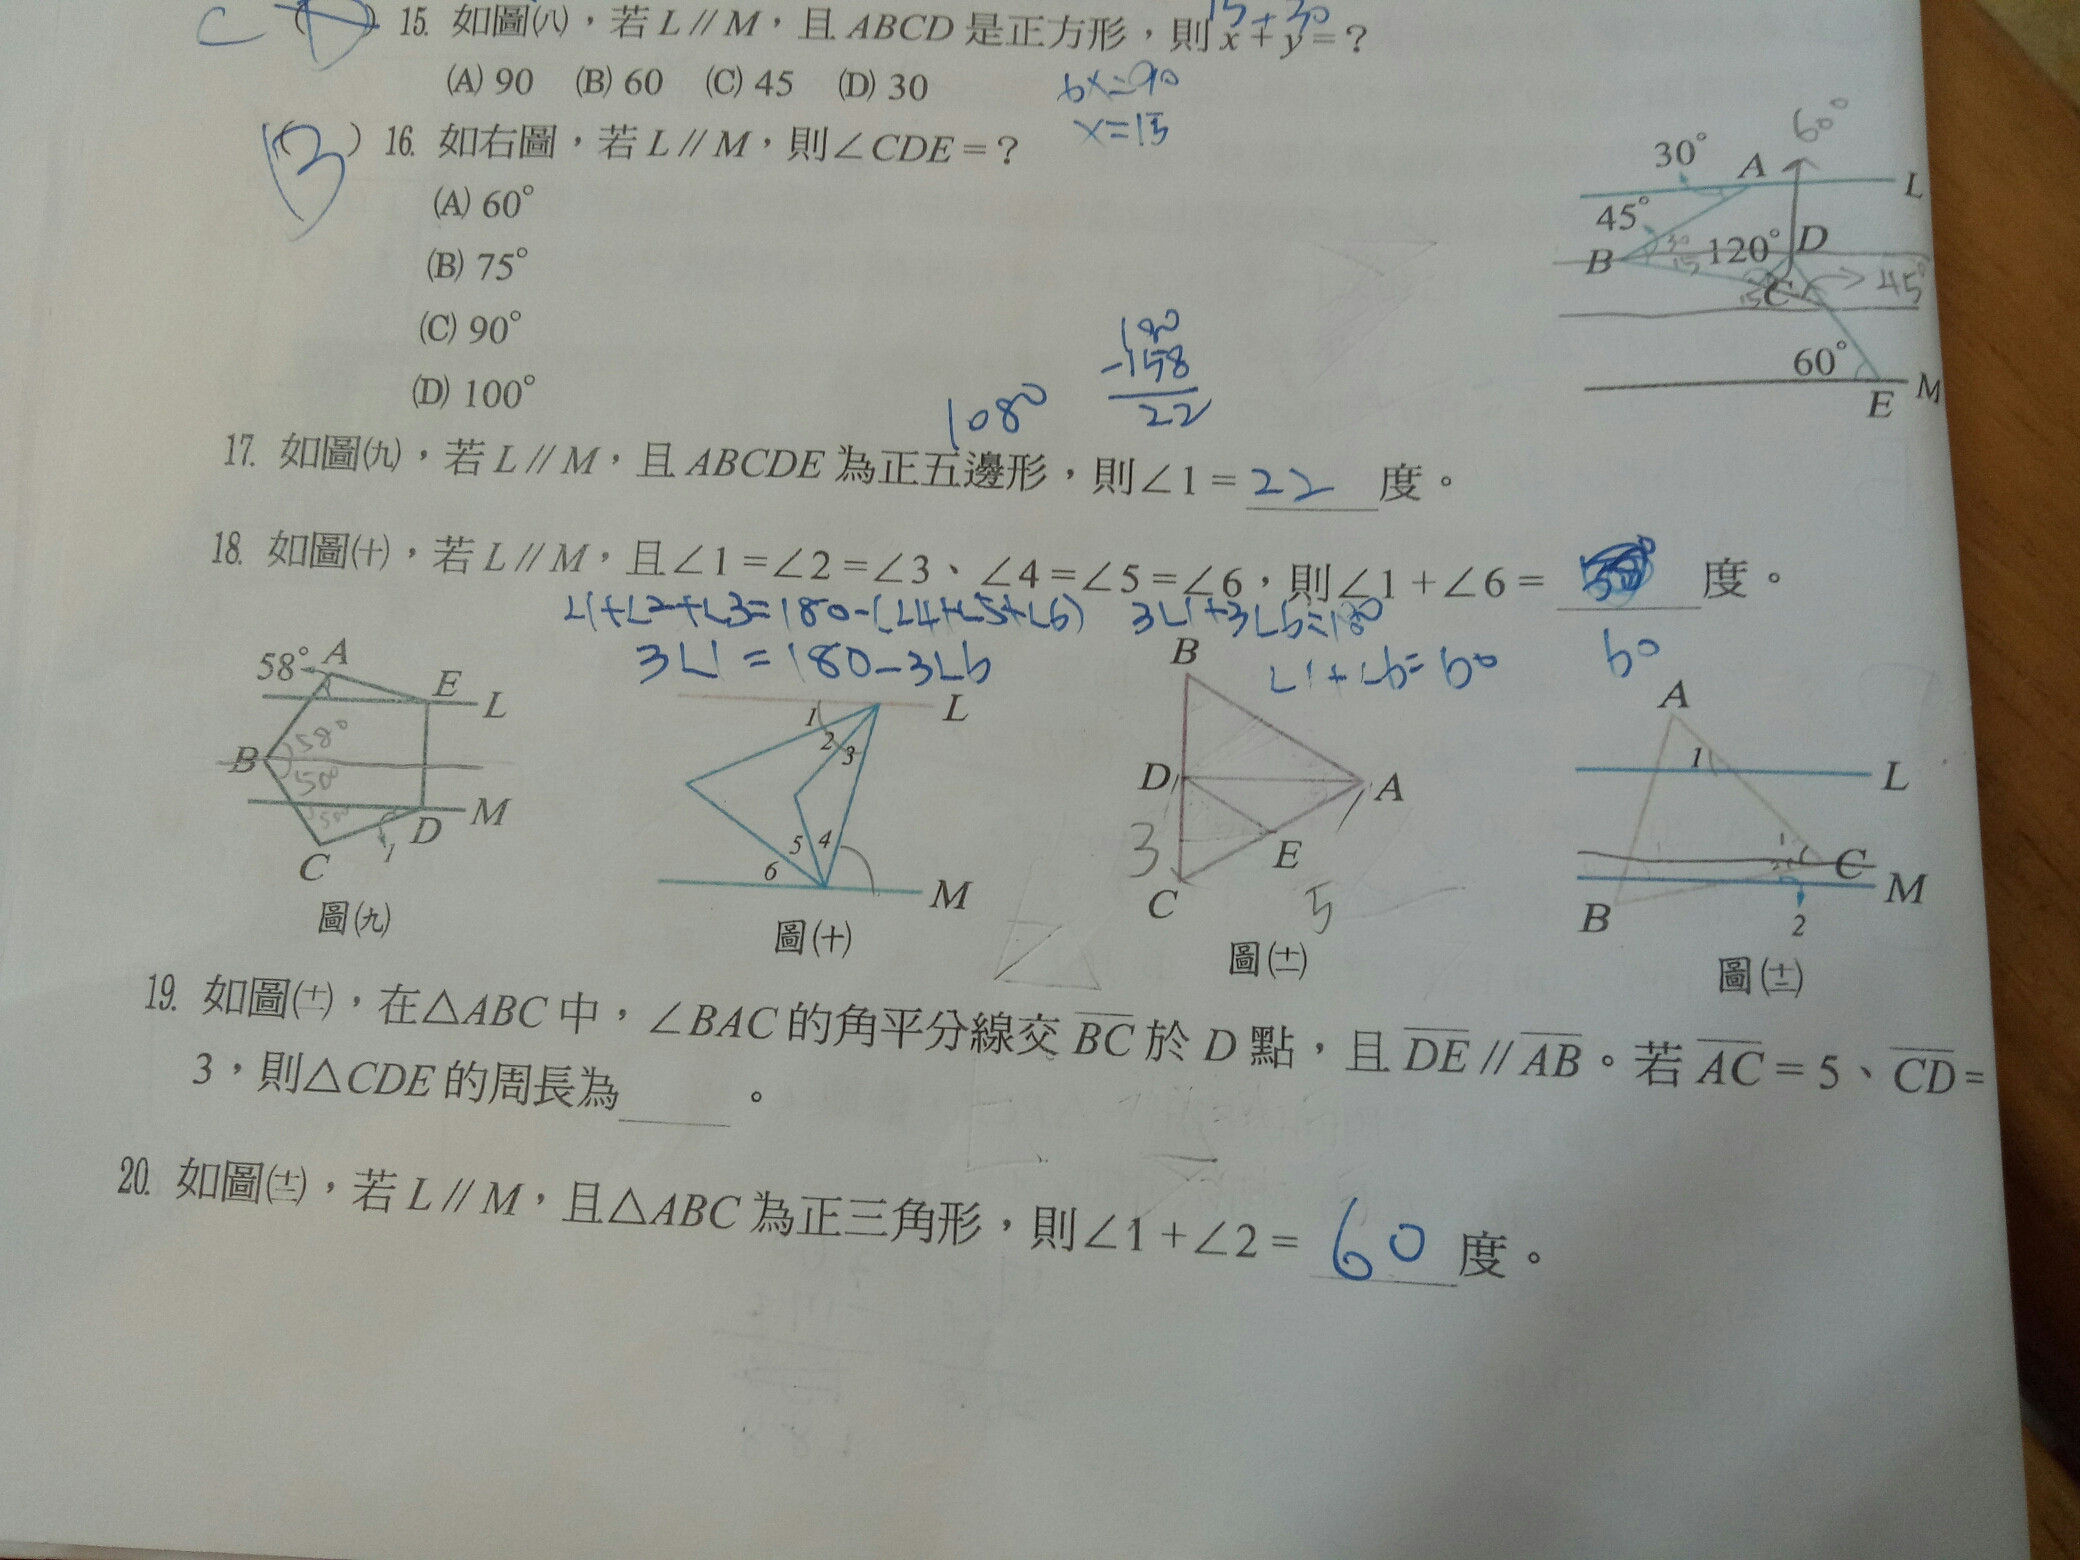 15. 如圖(八)，若 L // M，且 ABCD 是正方形，則 x + y = ?
15 + 30
(A) 90 (B) 60 (C) 45 (D) 30
6x=90
x=15
(B) 16. 如右圖，若 L // M，則∠CDE = ?
(A) 60°
(B) 75°
(C) 90°
(D) 100°
60°
30° A L
45°
B 120° D
30
15
C 45°
60°
E M
180
-158
22
108°
17. 如圖(九)，若 L // M，且 ABCDE 為正五邊形，則∠1 = 22 度。
18. 如圖(十)，若 L // M，且∠1 = ∠2 = ∠3、∠4 = ∠5 = ∠6，則∠1 + ∠6 = 度。
∠1+∠2+∠3=180-(∠4+∠5+∠6) 3∠1+3∠6=180
3∠1=180-3∠6 ∠1+∠6=60 60
58° A E L
B 58°
50°
50°
M
C D 1
圖(九)
L
1 2 3
6 5 4
M
圖(十)
B
D A
3 E
C 5
圖(十一)
A
1 L
1
2 C
B M
2
圖(十二)
19. 如圖(十一)，在△ABC 中，∠BAC 的角平分線交 BC 於 D 點，且 DE // AB。若 AC = 5、CD =
3，則△CDE 的周長為 。
20. 如圖(十二)，若 L // M，且△ABC 為正三角形，則∠1 + ∠2 = 60 度。